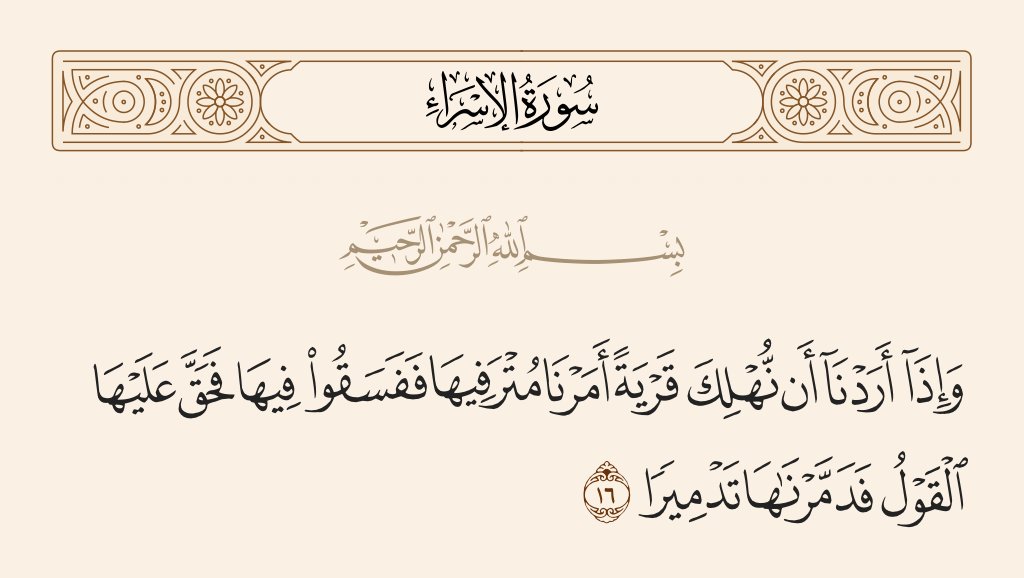 سُورَةُ الإِسْرَاءِ
بِسْمِ ٱللَّهِ ٱلرَّحْمَٰنِ ٱلرَّحِيمِ
وَإِذَآ أَرَدْنَآ أَن نُّهْلِكَ قَرْيَةً أَمَرْنَا مُتْرَفِيهَا فَفَسَقُوا۟ فِيهَا فَحَقَّ عَلَيْهَا
ٱلْقَوْلُ فَدَمَّرْنَٰهَا تَدْمِيرًا ١٦